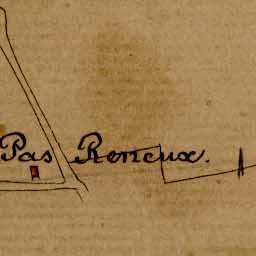 Pas Reneux.